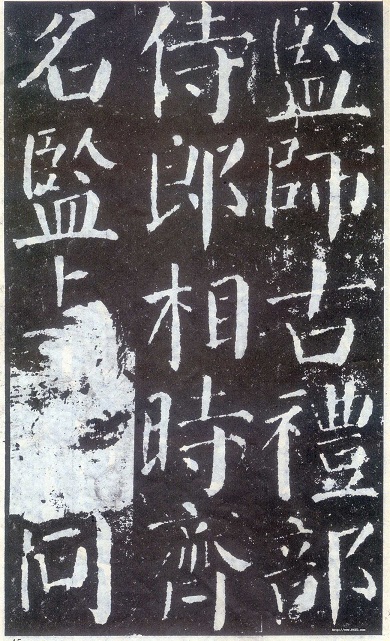 監師古禮部
侍郎相時齊
名監同